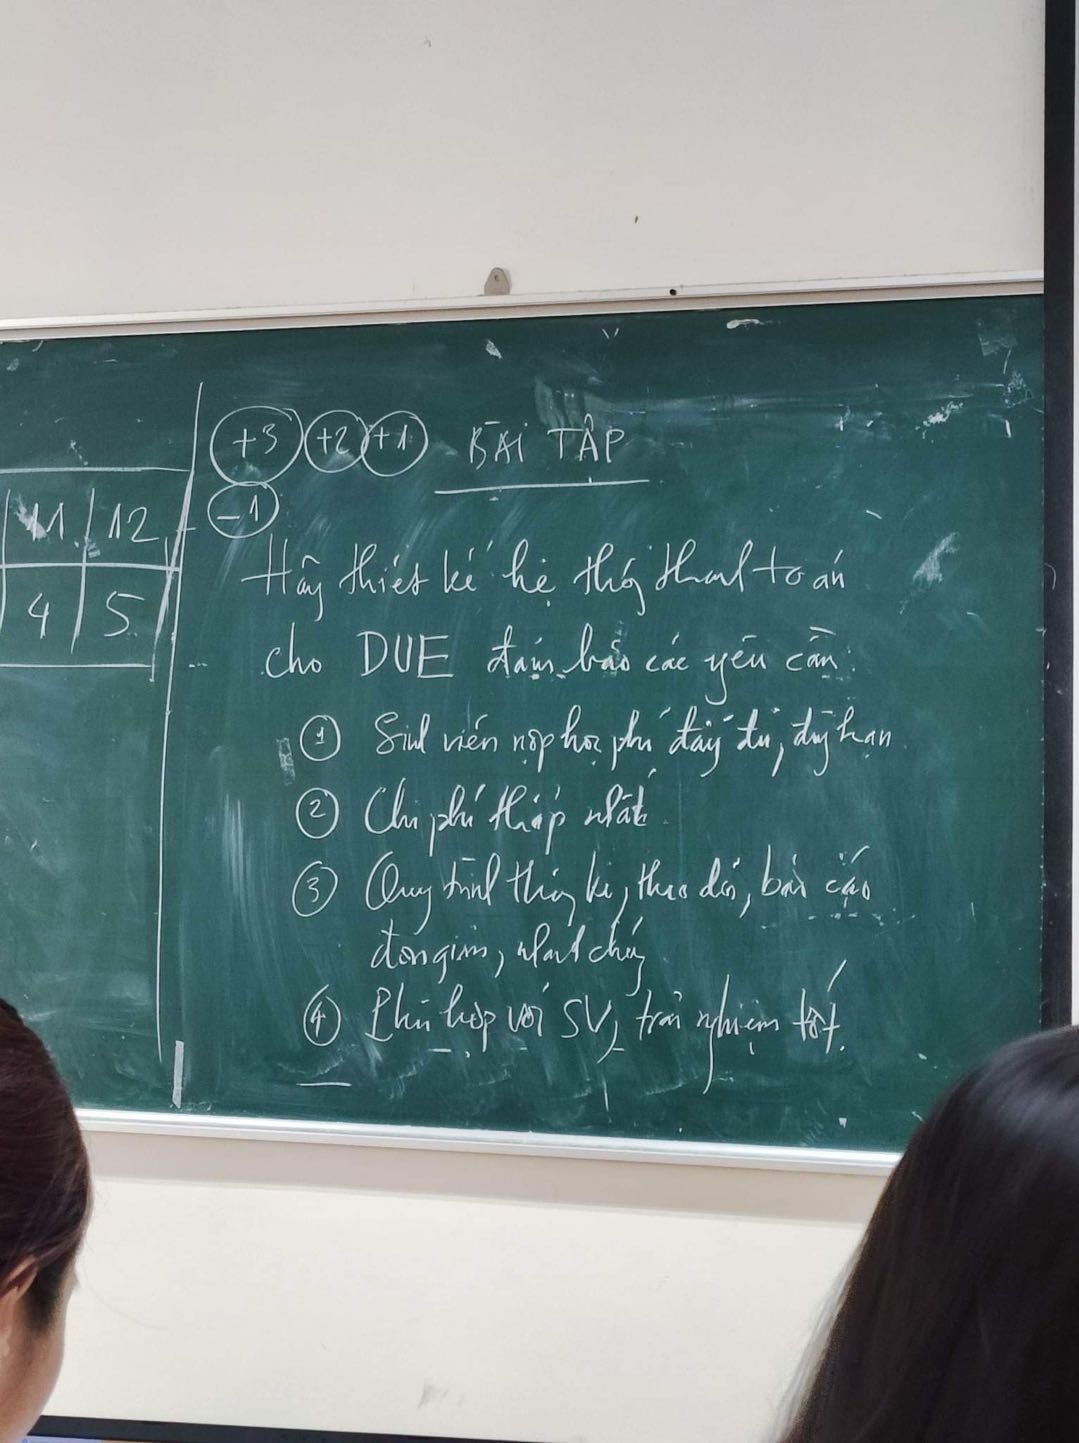 +3 +2 +1 BÀI TẬP
-1
11 12
4 5
Hãy thiết kế hệ thống thanh toán
cho DUE đảm bảo các yêu cầu:
① Sinh viên nộp học phí đầy đủ, đúng hạn
② Chi phí thấp nhất.
③ Quy trình thống kê, theo dõi, báo cáo
đơn giản, nhanh chóng
④ Phù hợp với SV, trải nghiệm tốt.